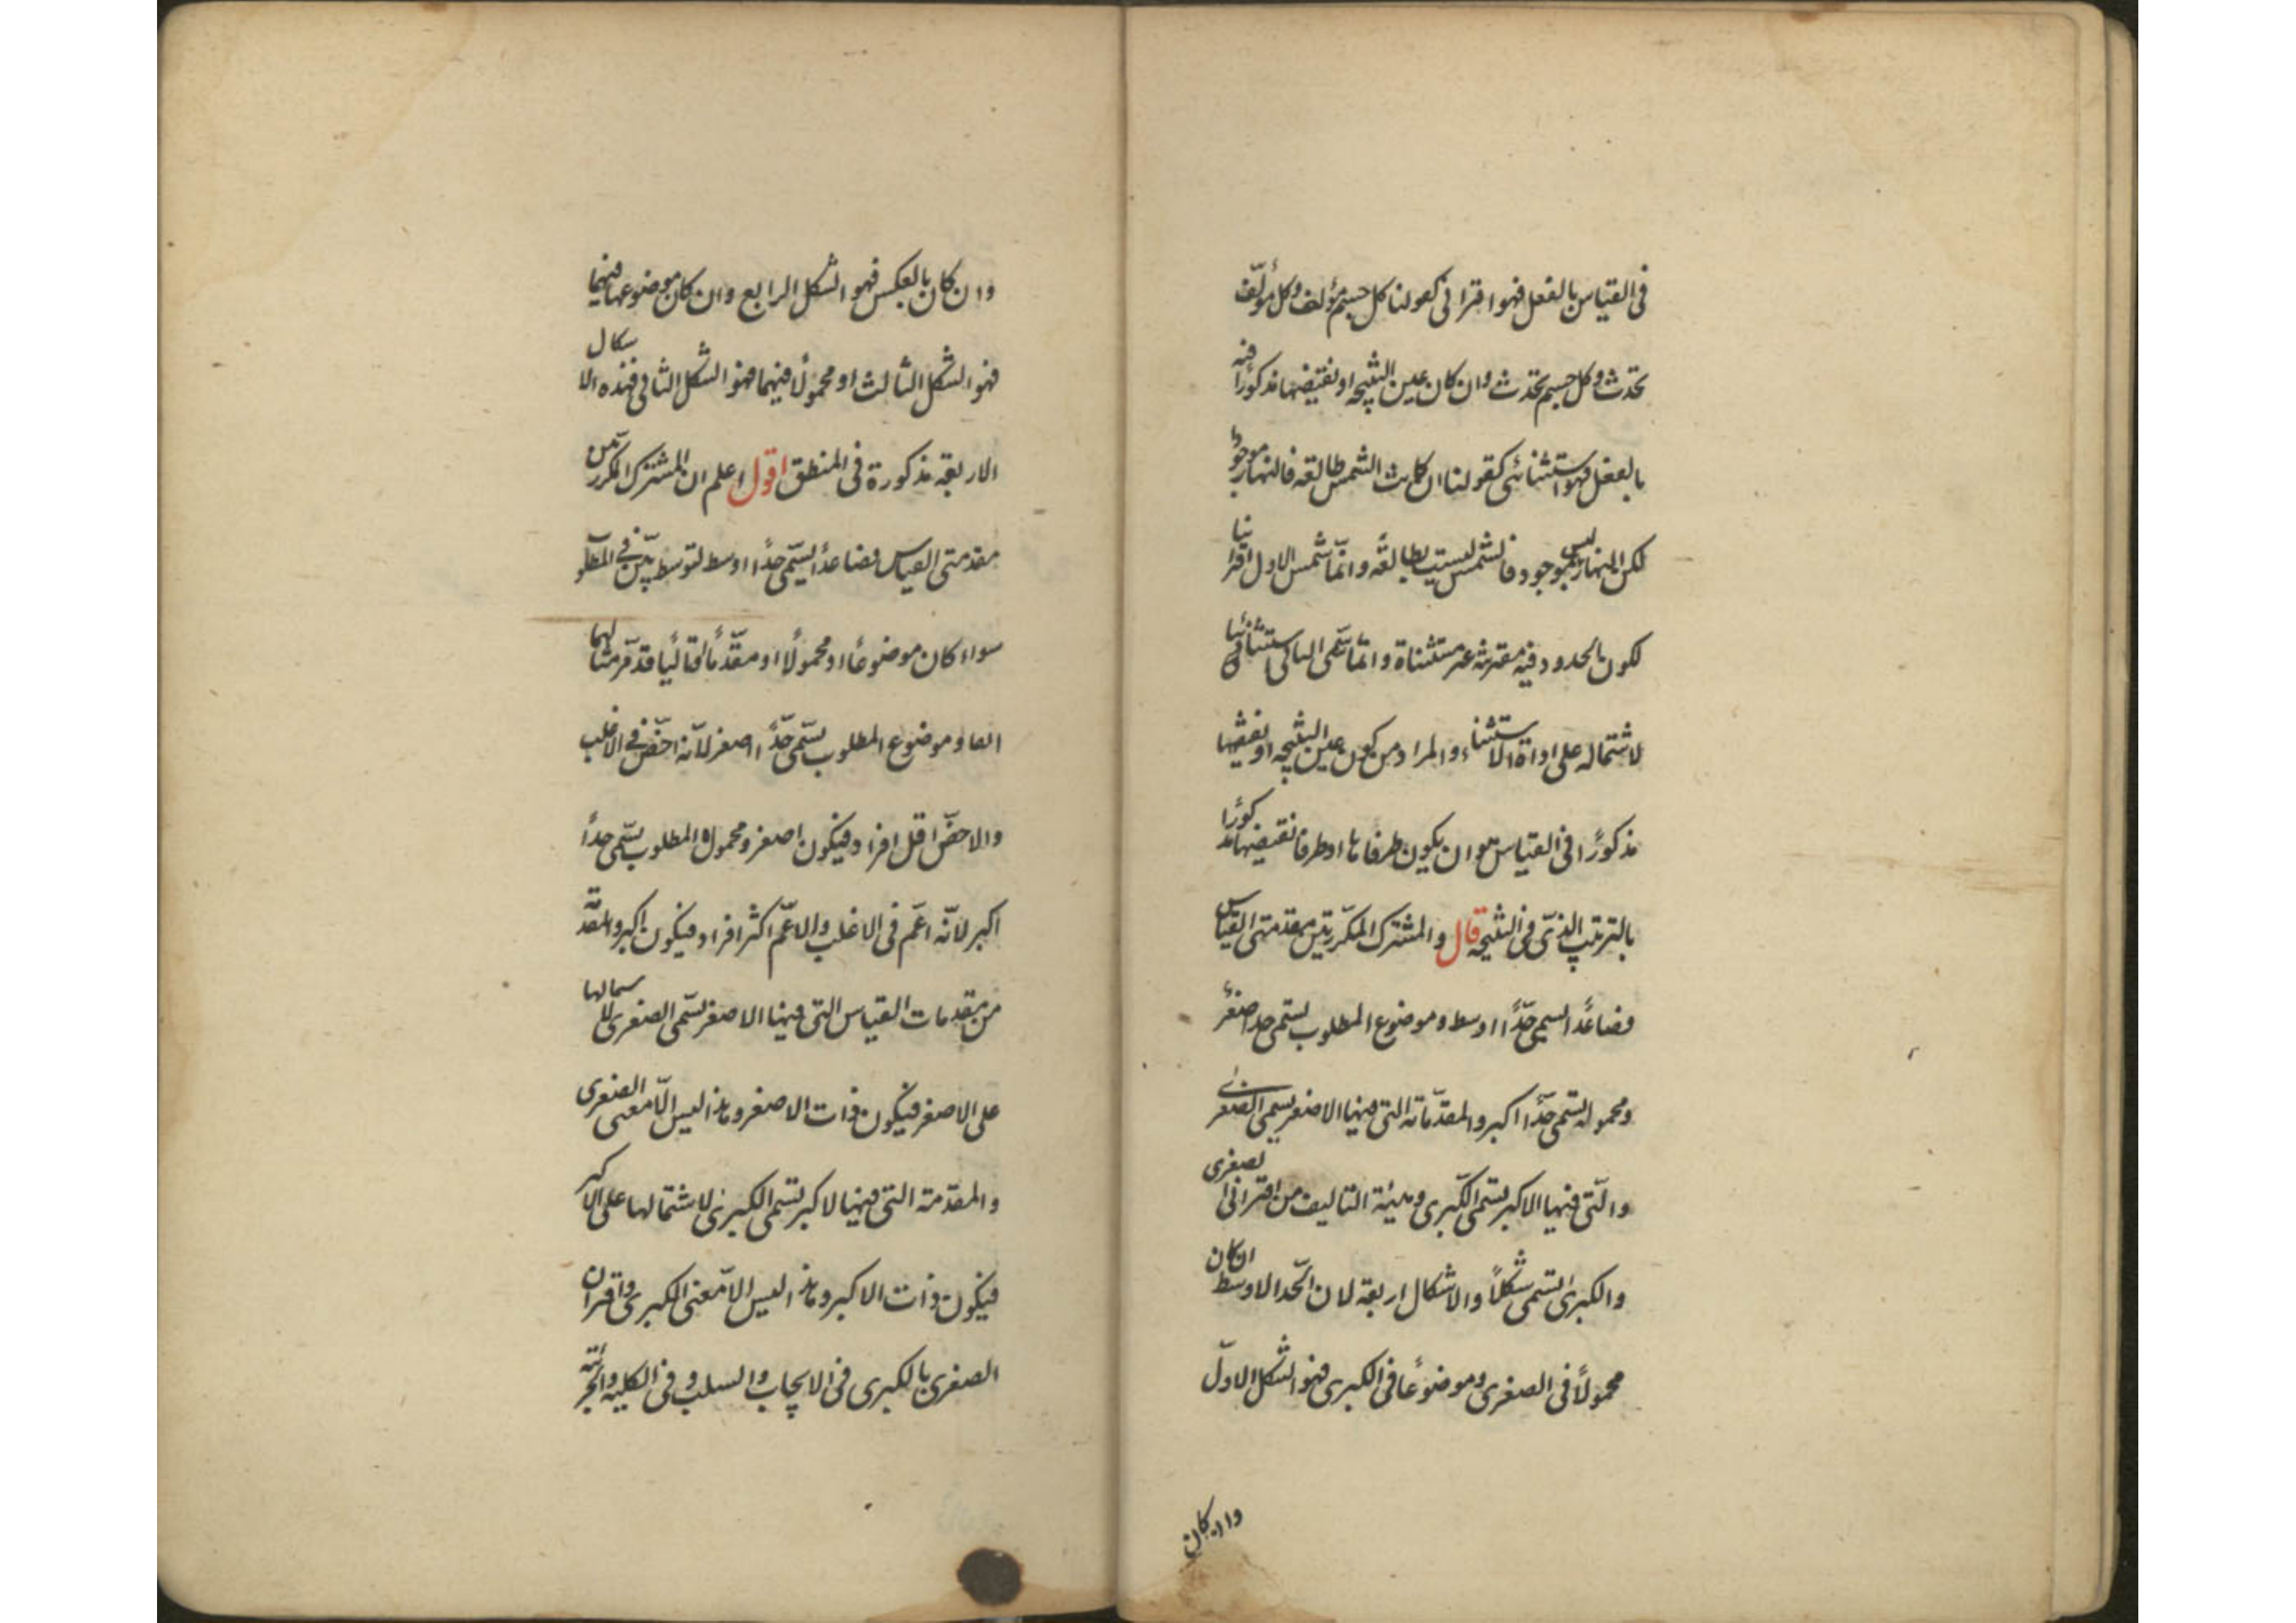 فى القياس بالفعل فهو اقترانى كقولنا كل جسم مؤلف وكل مؤلّف
محدث وكل جسم محدث وان كان عين النتيجه او نقيضها مذكورًا فيه
بالفعل فهو استثنائى كقولنا ان كانت الشمس طالعه فالنهار موجودٌ
لكن النهار ليس بموجود فالشمس ليست بطالعه وانما سمى الاول اقترانيا
لكون الحدود فيه مقترنه غير مستثناة وانما سمّى الثانى استثنائيا
لاشتماله على اداة الاستثناء والمراد من كون عين النتيجه او نقيضها
مذكورًا فى القياس هو ان يكون طرفاها او طرفا نقيضها مذكورًا
بالترتيب الذى فى النتيجه قال والمشترك المكرّر بين مقدمتى القياس
فصاعدًا يسمى حدًّا اوسط وموضوع المطلوب يسمى حدا اصغر
ومحموله يسمى حدًّا اكبر والمقدّماته التى فيها الاصغر يسمى الصغرى
والّتى فيها الاكبر يسمى الكبرى وهيئة التاليف من اقترانى الصغرى
والكبرى يسمى شكلًا والاشكال اربعة لان الحّد الاوسط ان كان
محمولًا فى الصغرى وموضوعًا فى الكبرى فهو الشكل الاوّل
وان كان
وان كان بالعكس فهو الشكل الرابع وان كان موضوعها فيهما
فهو الشكل الثالث او محمولًا فيهما فهو الشكل الثانى فهذه الاشكال
الاربعة مذكورة فى المنطق اقول اعلم ان المشترك المكرر بين
مقدمتى القياس فصاعدًا يسمّى حدًّا اوسط لتوسطه بين فى المطلو
سواء كان موضوعًا او محمولًا او مقدّمًا او تاليًا قد مرّ مثالهما
انفا وموضوع المطلوب يسمّى حدًّا اصغر لانّه اخصّ فى الاغلب
والاخصّ اقل افراد فيكون اصغر ومحمول المطلوب يسمّى حدًا
اكبر لانّه اعّم فى الاغلب والاعّم اكثر افراد فيكون اكبر والمقدمة
من مقدمات القياس التى فيها الاصغر يسمّى الصغرى لاشتمالها
على الاصغر فيكون ذات الاصغر وهذا ليس الّا معنى الصغرى
والمقدّمة التى فيها الاكبر يسمى الكبرى لاشتمالها على الاكبر
فيكون ذات الاكبر وهذا ليس الا معنى الكبرى واقتران
الصغرى بالكبرى فى الايجاب والسلب وفى الكليه والجزئيّه